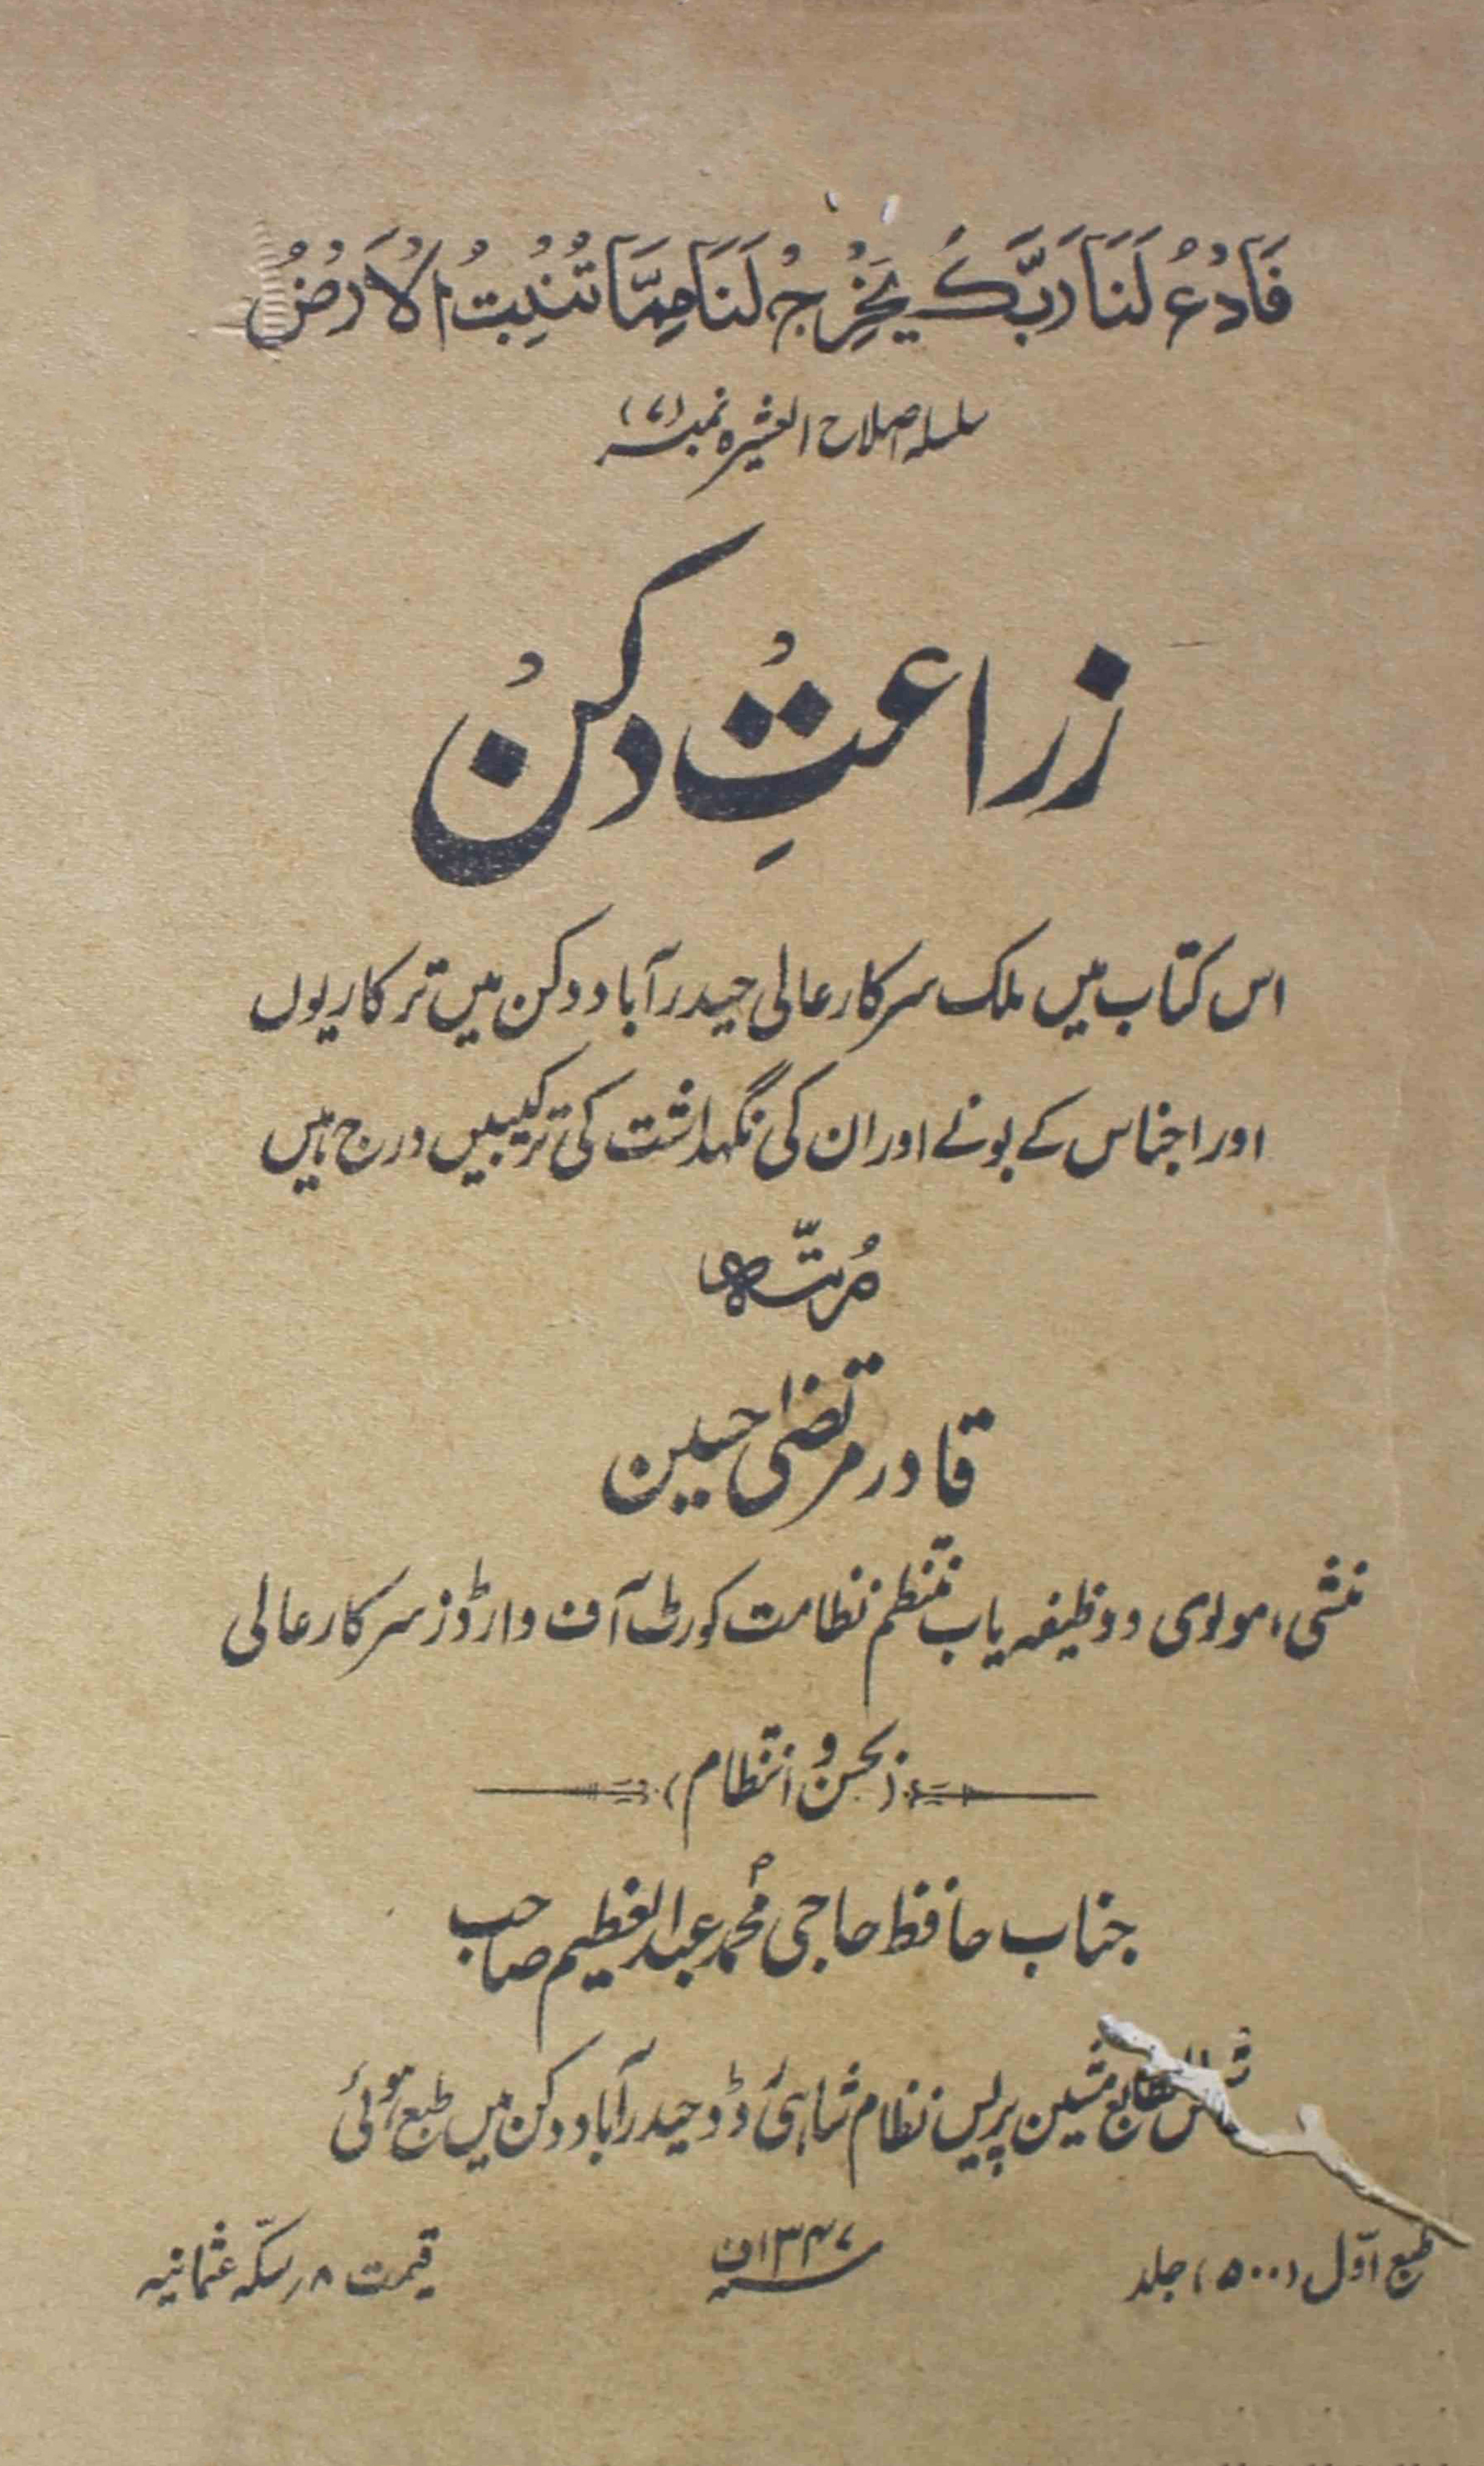 فَادْعُ لَنَا رَبَّكَ يُخْرِجْ لَنَا مِمَّا تُنْبِتُ الْاَرْضُ
سلسلہ اصلاح العشیرہ نمبر (۷)
زراعتِ دکن
اس کتاب میں ملک سرکار عالی حیدرآباد دکن میں ترکاریوں
اور اجناس کے بونے اور ان کی نگہداشت کی ترکیبیں درج ہیں
مُرتّبہ
قادر مرتضیٰ حسین
منشی، مولوی و وظیفہ یاب منتظم نظامت کورٹ آف وارڈز سرکار عالی
(بحسن و انتظام)
جناب حافظ حاجی محمد عبدالعظیم صاحب
المطابع مشین پریس نظام شاہی روڈ حیدرآباد دکن میں طبع ہوئی
طبع اوّل (۵۰۰) جلد
۱۳۴۷ف
قیمت ۸ر سکّہ عثمانیہ